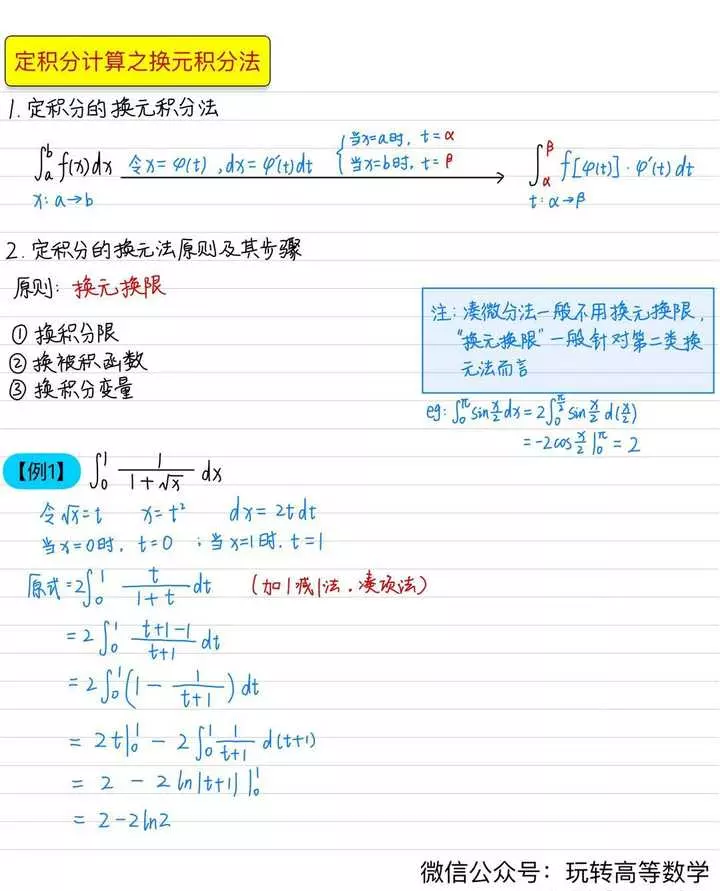 定积分计算之换元积分法
1. 定积分的换元积分法
∫_a^b f(x)dx 令x=φ(t), dx=φ'(t)dt { 当x=a时, t=α 当x=b时, t=β → ∫_α^β f[φ(t)]·φ'(t)dt
x: a→b t: α→β
2. 定积分的换元法原则及其步骤
原则: 换元换限
① 换积分限
② 换被积函数
③ 换积分变量
注: 凑微分法一般不用换元换限,
"换元换限"一般针对第二类换
元法而言
eg: ∫_0^π sin x/2 dx = 2∫_0^π sin x/2 d(x/2)
= -2cos x/2 |_0^π = 2
【例1】 ∫_0^1 1/(1+√x) dx
令√x=t x=t² dx=2tdt
当x=0时, t=0 ; 当x=1时. t=1
原式=2∫_0^1 t/(1+t) dt (加1减1法.凑项法)
= 2∫_0^1 (t+1-1)/(t+1) dt
= 2∫_0^1 (1 - 1/(t+1)) dt
= 2t|_0^1 - 2∫_0^1 1/(t+1) d(t+1)
= 2 - 2ln|t+1| |_0^1
= 2-2ln2
微信公众号: 玩转高等数学